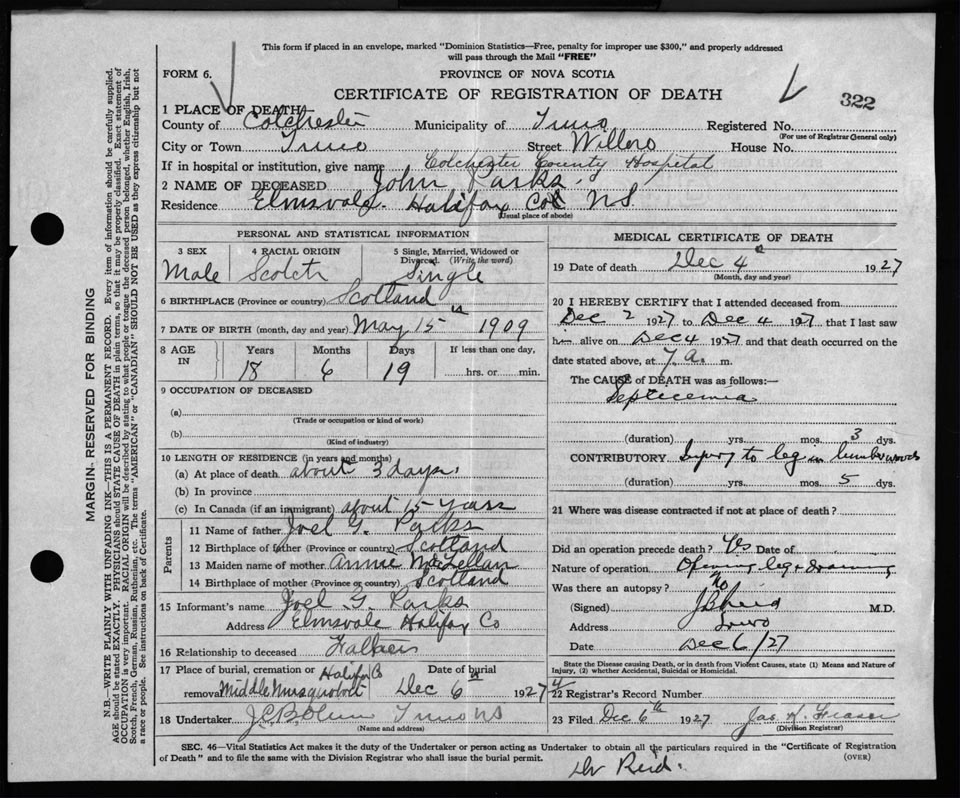 This form if placed in an envelope, marked "Dominion Statistics—Free, penalty for improper use $300," and properly addressed
will pass through the Mail "FREE"
FORM 6.
PROVINCE OF NOVA SCOTIA
CERTIFICATE OF REGISTRATION OF DEATH
322
1 PLACE OF DEATH
County of Colchester Municipality of Truro Registered No.
(For use of Registrar General only)
City or Town Truro Street Willow House No.
If in hospital or institution, give name Colchester County Hospital
2 NAME OF DECEASED John Parks.
Residence Elmsvale. Halifax Co NS.
(Usual place of abode)
PERSONAL AND STATISTICAL INFORMATION
3 SEX Male
4 RACIAL ORIGIN Scotch
5 Single, Married, Widowed or Divorced. (Write the word) Single
6 BIRTHPLACE (Province or country) Scotland
7 DATE OF BIRTH (month, day and year) May 15th 1909
8 AGE IN Years Months Days If less than one day,
18 6 19 hrs. or min.
9 OCCUPATION OF DECEASED
(a)
(Trade or occupation or kind of work)
(b)
(Kind of industry)
10 LENGTH OF RESIDENCE (in years and months)
(a) At place of death about 3 days.
(b) In province
(c) In Canada (if an immigrant) about 15 years
Parents
11 Name of father Joel G. Parks
12 Birthplace of father (Province or country) Scotland
13 Maiden name of mother Annie McLellan
14 Birthplace of mother (Province or country) Scotland
15 Informant's name Joel G. Parks
Address Elmsvale Halifax Co
16 Relationship to deceased Father
17 Place of burial, cremation or removal Middle Musquodoboit Halifax Co Date of burial Dec 6th 1927
18 Undertaker Truro NS
(Name and address)
MEDICAL CERTIFICATE OF DEATH
19 Date of death Dec 4th 1927
(Month, day and year)
20 I HEREBY CERTIFY that I attended deceased from
Dec 2 1927 to Dec 4 1927 that I last saw
h alive on Dec 4 1927 and that death occurred on the
date stated above, at 7 a. m.
The CAUSE of DEATH was as follows:—
Septicemia
(duration) yrs. mos. 3 dys.
CONTRIBUTORY Injury to leg in lumber woods
(duration) yrs. mos. 5 dys.
21 Where was disease contracted if not at place of death?
Did an operation precede death? Yes Date of
Nature of operation Opening leg & draining
Was there an autopsy? No
(Signed) J B Reid M.D.
Address Truro
Date Dec 6/27
State the Disease causing Death, or in death from Violent Causes, state (1) Means and Nature of
Injury, (2) whether Accidental, Suicidal or Homicidal.
22 Registrar's Record Number
23 Filed Dec 6th 1927 Jas K. Fraser
(Division Registrar)
SEC. 46—Vital Statistics Act makes it the duty of the Undertaker or person acting as Undertaker to obtain all the particulars required in the "Certificate of Registration
of Death" and to file the same with the Division Registrar who shall issue the burial permit.
(OVER)
Dr Reid.
MARGIN RESERVED FOR BINDING
N.B.—WRITE PLAINLY WITH UNFADING INK—THIS IS A PERMANENT RECORD. Every item of information should be carefully supplied.
AGE should be stated EXACTLY. PHYSICIANS should STATE CAUSE OF DEATH in plain terms, so that it may be properly classified. Exact statement of
OCCUPATION is very important. RACIAL ORIGIN will be described by stating to what people or tongue the deceased person belonged, whether English, Irish,
Scotch, French, German, Russian, Ruthenian, etc. The terms "AMERICAN" or "CANADIAN" SHOULD NOT BE USED as they express citizenship but not
a race or people. See instructions on back of Certificate.